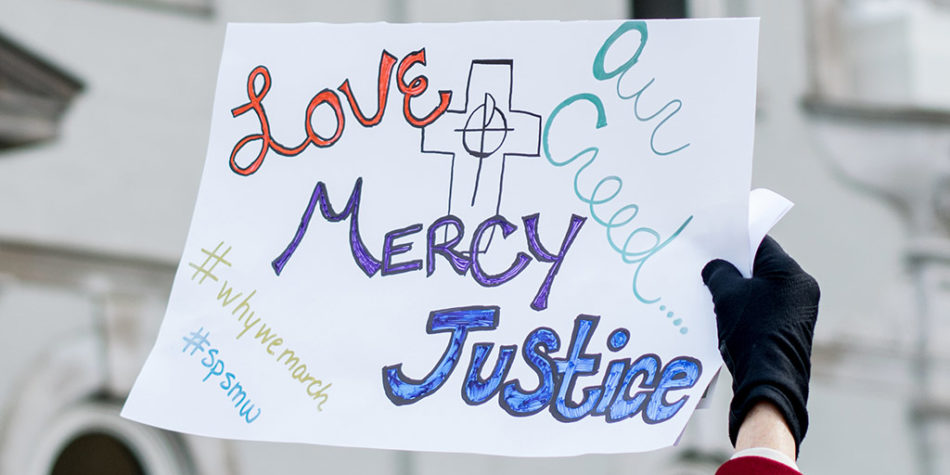 Our
Creed....
Love
Mercy
Justice
#whywemarch
#spsmw